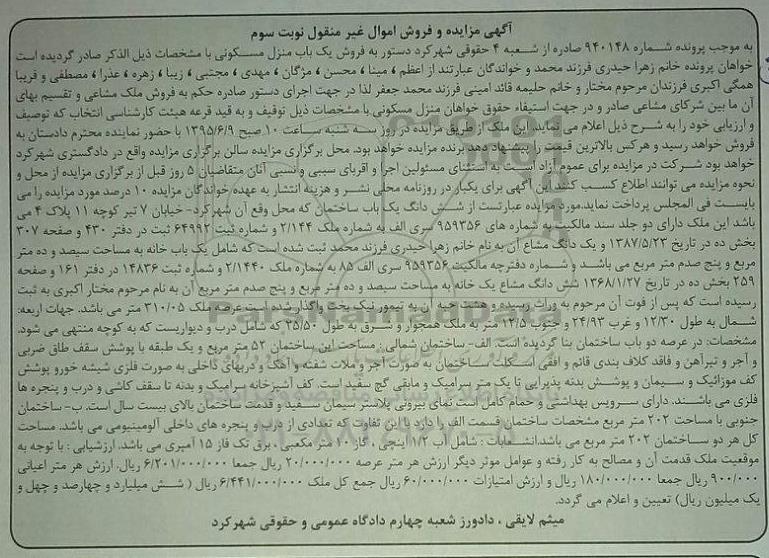 آگهی مزایده و فروش اموال غیر منقول نوبت سوم
به موجب پرونده شماره ۹۴۰۱۴۸ صادره از شعبه ۴ حقوقی شهرکرد دستور به فروش یک باب منزل مسکونی با مشخصات ذیل الذکر صادر گردیده است
خواهان پرونده خانم زهرا حیدری فرزند محمد و خواندگان عبارتند از اعظم ، مینا ، محسن ، مژگان ، مهدی ، مجتبی ، زیبا ، زهره ، عذرا ، مصطفی و فریبا
همگی اکبری فرزندان مرحوم مختار و خانم حلیمه قائد امینی فرزند محمد جعفر لذا در جهت اجرای دستور صادره حکم به فروش ملک مشاعی و تقسیم بهای
آن ما بین شرکای مشاعی صادر و در جهت استیفاء حقوق خواهان منزل مسکونی با مشخصات ذیل توقیف و به قید قرعه هیئت کارشناسی انتخاب که توصیف
و ارزیابی خود را به شرح ذیل اعلام می نماید. این ملک از طریق مزایده در روز سه شنبه ساعت ۱۰ صبح ۱۳۹۵/۶/۹ با حضور نماینده محترم دادستان به
فروش خواهد رسید و هرکس بالاترین قیمت را پیشنهاد دهد برنده مزایده خواهد بود. محل برگزاری مزایده سالن برگزاری مزایده واقع در دادگستری شهرکرد
خواهد بود شرکت در مزایده برای عموم آزاد است به استثنای مسئولین اجرا و اقربای سببی و نسبی آنان متقاضیان ۵ روز قبل از برگزاری مزایده از محل و
نحوه مزایده می توانند اطلاع کسب کنند این آگهی برای یکبار در روزنامه محلی نشر و هزینه انتشار به عهده خواندگان مزایده ۱۰ درصد مورد مزایده را می
بایست فی المجلس پرداخت نماید.مورد مزایده عبارتست از شش دانگ یک باب ساختمان که محل وقع آن شهرکرد- خیابان ۷ تیر کوچه ۱۱ پلاک ۴ می
باشد این ملک دارای دو جلد سند مالکیت به شماره های ۹۵۹۳۵۶ سری الف به شماره ملک ۲/۱۴۴ و شماره ثبت ۶۴۹۹۲ ثبت در دفتر ۴۳۰ و صفحه ۳۰۷
بخش ده در تاریخ ۱۳۸۷/۵/۲۳ و یک دانگ مشاع آن به نام خانم زهرا حیدری فرزند محمد ثبت شده است که شامل یک باب خانه به مساحت سیصد و ده متر
مربع و پنج صدم متر مربع می باشد و شماره دفترچه مالکیت ۹۵۹۳۵۶ سری الف ۸۵ به شماره ملک ۲/۱۴۴۰ و شماره ثبت ۱۴۸۳۶ در دفتر ۱۶۱ و صفحه
۲۵۹ بخش ده در تاریخ ۱۳۶۸/۱/۲۷ شش دانگ مشاع یک خانه به مساحت سیصد و ده متر مربع و پنج صدم متر مربع آن به نام مرحوم مختار اکبری به ثبت
رسیده است که پس از فوت آن مرحوم به وراث رسیده و هشت حبه آن به تیمور نیک بخت واگذار شده است عرصه ملک ۳۱۰/۰۵ متر می باشد. جهات اربعه:
شمال به طول ۱۲/۳۰ و غرب ۲۴/۹۳ و جنوب ۱۲/۵ متر به ملک همجوار و شرق به طول ۲۵/۵۰ که شامل درب و دیواریست که به کوچه منتهی می شود.
مشخصات: در عرصه دو باب ساختمان بنا گردیده است. الف- ساختمان شمالی: مساحت این ساختمان ۵۲ متر مربع و یک طبقه با پوشش سقف طاق ضربی
و آجر و تیرآهن و فاقد کلاف بندی قائم و افقی اسکلت ساختمان به صورت آجر و ملات شفته و آهک و دربهای داخلی به صورت فلزی شیشه خورو پوشش
کف موزائیک و سیمان و پوشش بدنه پذیرایی تا یک متر سرامیک و مابقی گچ سفید است. کف آشپزخانه سرامیک و بدنه تا سقف کاشی و درب و پنجره ها
فلزی می باشند. دارای سرویس بهداشتی و حمام کامل است نمای بیرونی پلاستر سیمان سفید و قدمت ساختمان بالای بیست سال است. ب- ساختمان
جنوبی با مساحت ۲۰۲ متر مربع مشخصات ساختمان قسمت الف را دارد با این تفاوت که تعدادی از درب و پنجره های داخلی آلومینیومی می باشد. مساحت
کل هر دو ساختمان ۲۰۲ متر مربع می باشد.انشعابات : شامل آب ۱/۲ اینچی ، گاز ۱۰ متر مکعبی ، برق تک فاز ۱۵ آمپری می باشد. ارزشیابی : با توجه به
موقعیت ملک قدمت آن و مصالح به کار رفته و عوامل موثر دیگر ارزش هر متر عرصه ۲۰/۰۰۰/۰۰۰ ریال جمعا ۶/۲۰۱/۰۰۰/۰۰۰ ریال. ارزش هر متر اعیانی
۹۰۰/۰۰۰ ریال جمعا ۱۸۰/۰۰۰/۰۰۰ ریال و ارزش امتیازات ۶۰/۰۰۰/۰۰۰ ریال جمع کل ملک ۶/۴۴۱/۰۰۰/۰۰۰ ریال ( شش میلیارد و چهارصد و چهل و
یک میلیون ریال) تعیین و اعلام می گردد.
میثم لایقی ، دادورز شعبه چهارم دادگاه عمومی و حقوقی شهرکرد
ParsNamadData